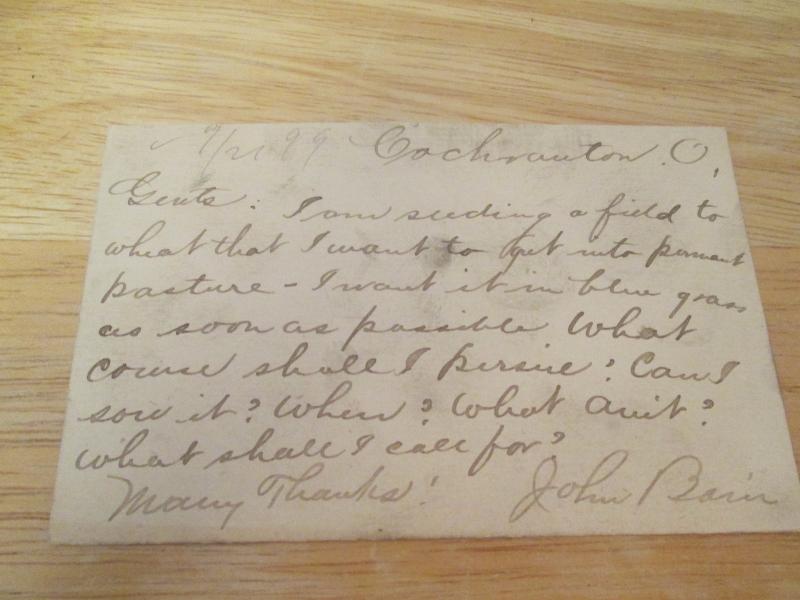 9/21 99 Cochranton. O,
Gents: I am seeding a field to
wheat that I want to get into permant
pasture - I want it in blue grass
as soon as possible What
course shall I persue? Can I
sow it? When? What amt?
What shall I call for?
Many Thanks! John Bain